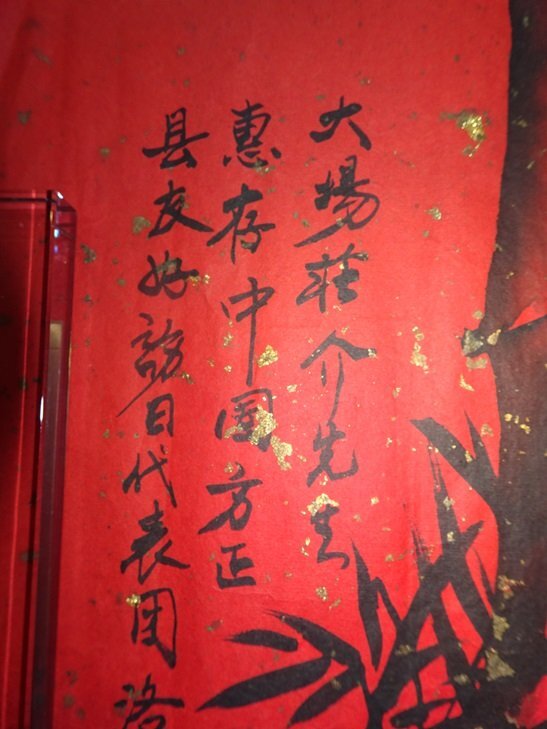 大場莊介先生
惠存中国方正
县友好訪日代表团洛